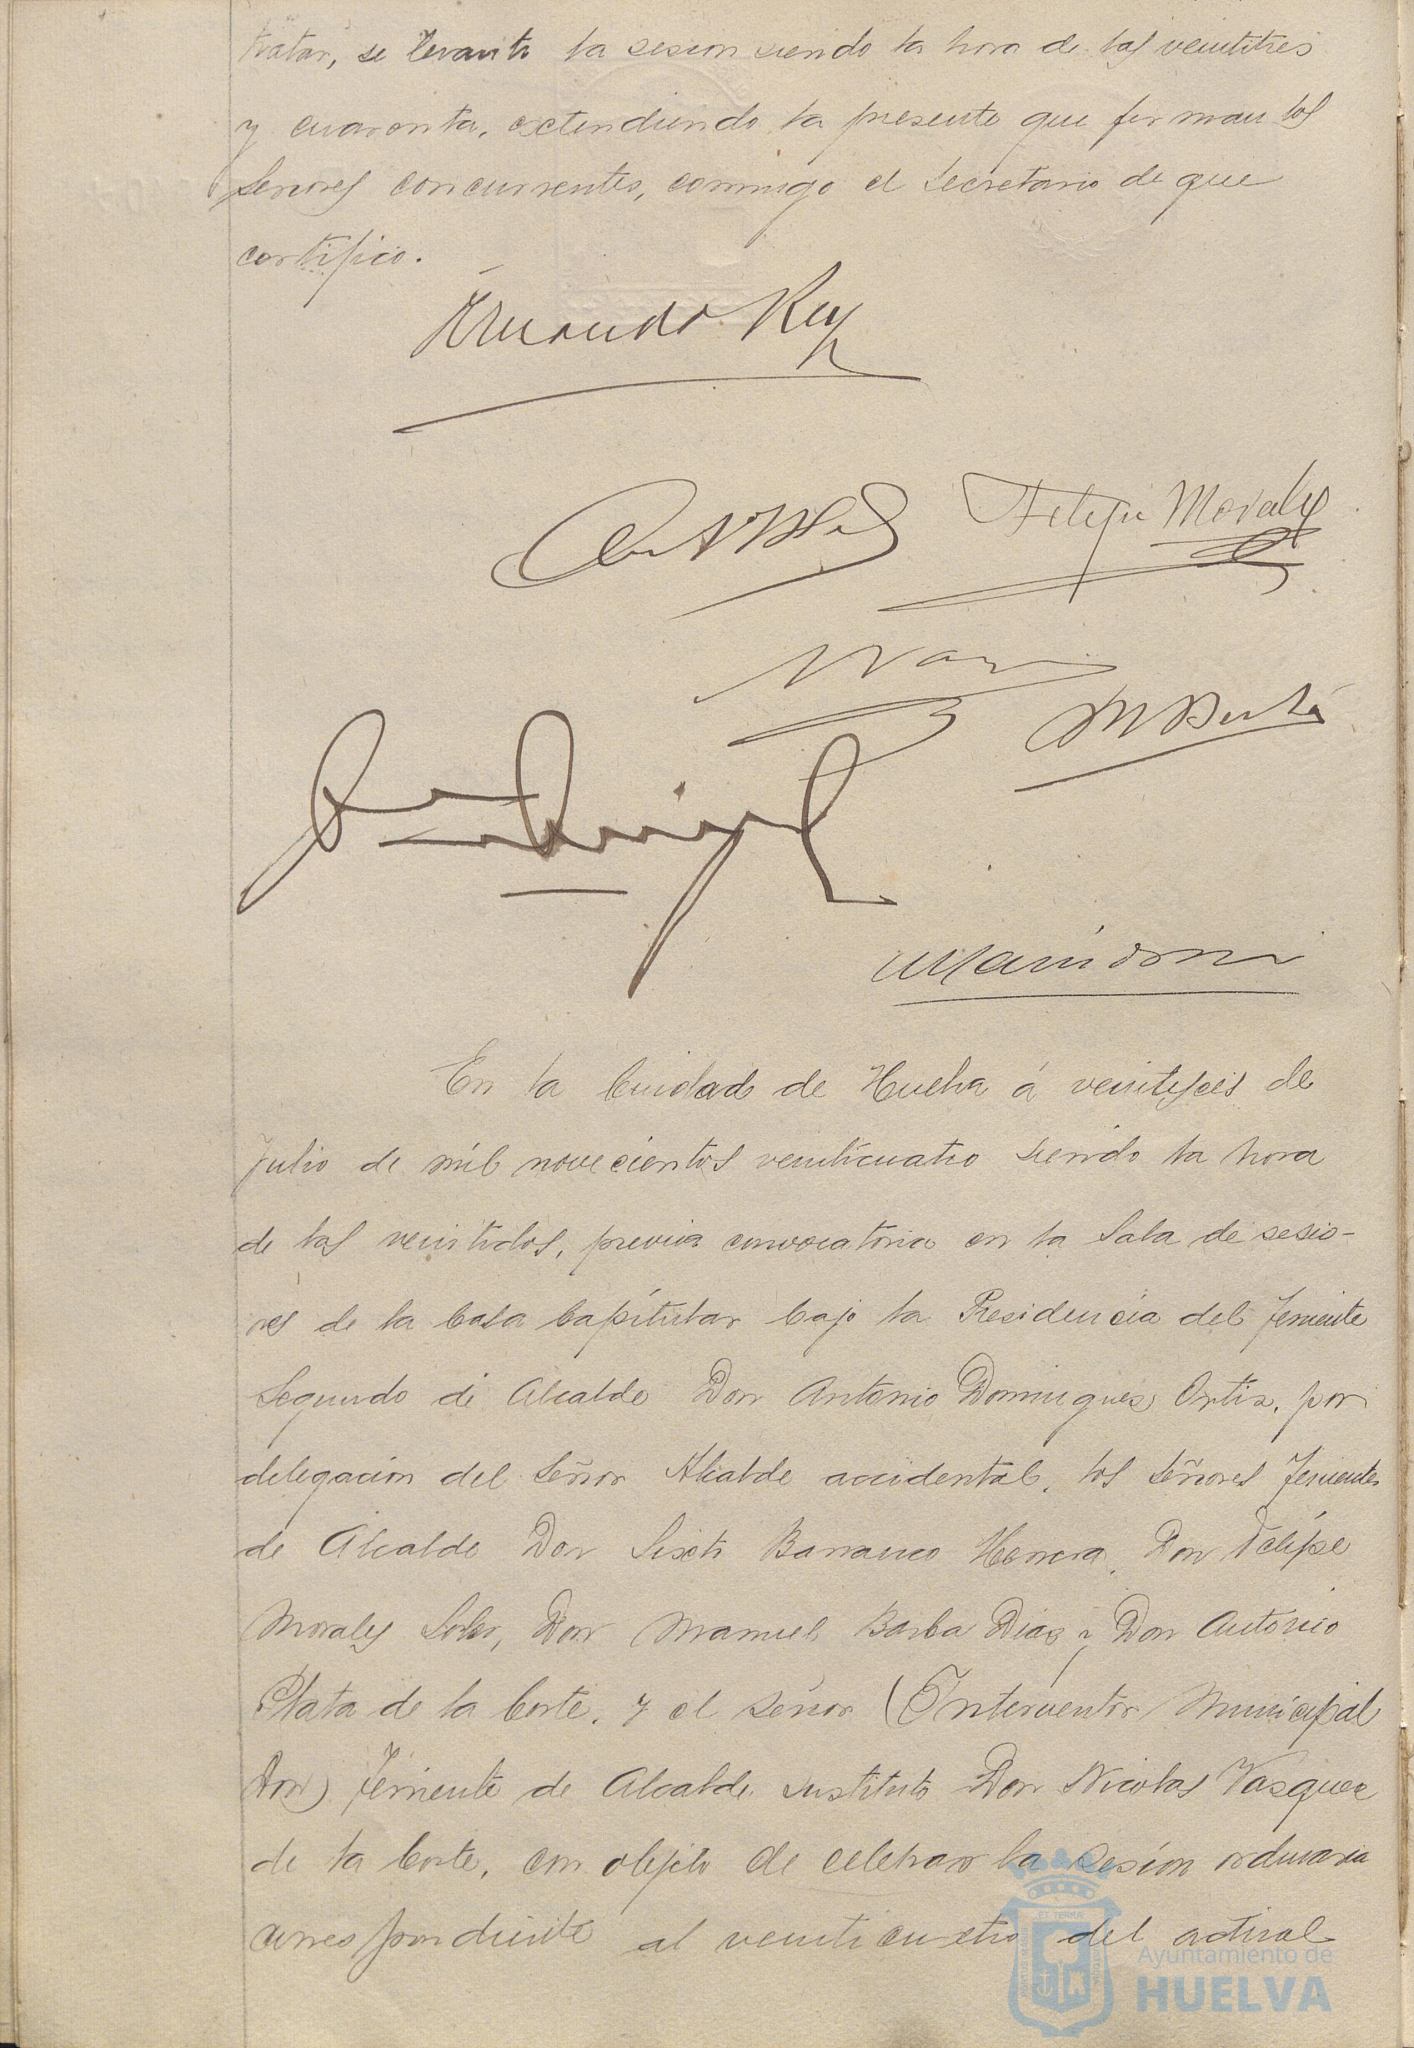 tratar, se levantó la sesion siendo la hora de las veintitres
y cuarenta, extendiendo la presente que firman los
Señores concurrentes, conmigo el Secretario de que
certifico.
Armando Rey
Felipe Morales
M Barba
En la Ciudad de Huelva á veintiseis de
Julio de mil novecientos veinticuatro siendo la hora
de las veintidos, previa convocatoria en la Sala de sesio-
nes de la Casa Capitular bajo la Presidencia del Teniente
Segundo de Alcalde Don Antonio Dominguez Ortiz, por
delegacion del Señor Alcalde accidental, los Señores Tenientes
de Alcalde Don Sixto Barranco Herrera, Don Felipe
Morales Soler, Don Manuel Barba Diaz y Don Antonio
Plata de la Corte, y el Señor (Interventor Municipal
Don) Teniente de Alcalde sustituto Don Nicolas Vazquez
de la Corte, con objeto de celebrar la sesion ordinaria
correspondiente al veinticuatro del actual
Ayuntamiento de
HUELVA